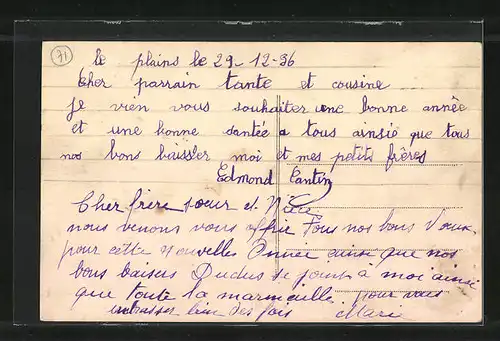 71
le plains le 29-12-36
Cher parrain tante et cousine
Je vien vous souhaiter une bonne année
et une bonne santée a tous ainsie que tous
nos bons baisser moi et mes petits frères
Edmond Cantin
Cher frère sœur et Nièce
nous venons vous offrir Tous nos bons Vœux
pour cette nouvelles Année ainsi que nos
bons baisers se joint à moi ainsi
que toute la marmaille pour vous
embrasser bien des fois Marie